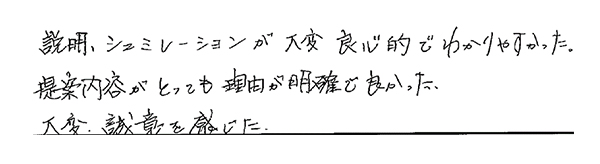 説明、シュミレーションが大変良心的でわかりやすかった。
提案内容がとっても理由が明確で良かった.
大変.誠意を感じた.